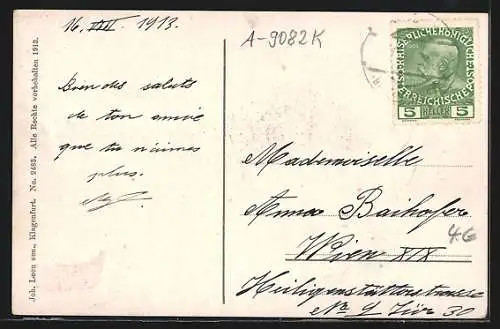 16. VIII. 1913.
A-9082K
Bien des saluts
de ton amie
que tu n'aimes
plus.
Joh. Leon sen., Klagenfurt. No. 2483. Alle Rechte vorbehalten 1912.
KAISERLICHE KÖNIGLICHE
ÖSTERREICHISCHE POST
5 HELLER 5
Mademoiselle
Anna Baihofer
Wien XIX
46
Heiligenstätterstrasse
No 9 Tür 30